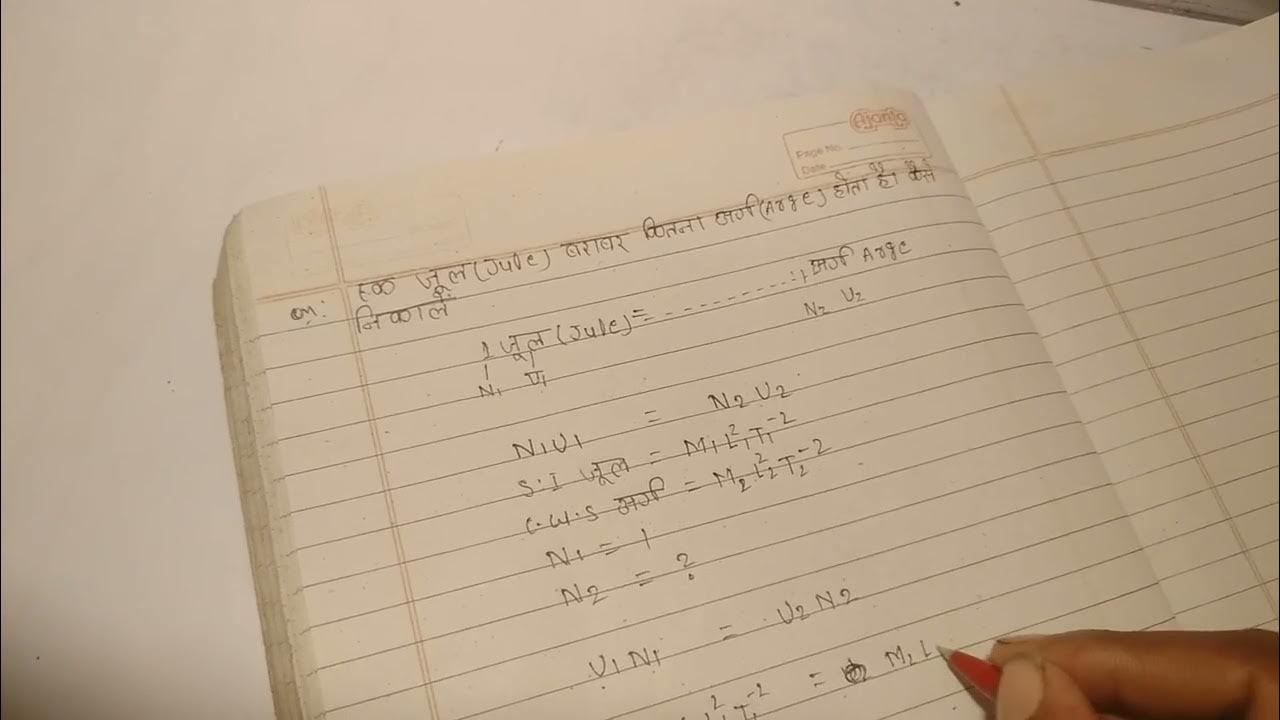 Ajanta
Page No.
Date
एक जूल (Jule) बराबर कितना अर्ग (Arge) होता है। कैसे
निकालें
1 जूल (Jule) = - - - - - - - - - अर्ग Arge
N₁ U₁ N₂ U₂
N₁U₁ = N₂ U₂
S.I जूल = M₁ L₁² T₁⁻²
अर्ग = M₂ L₂² T₂⁻²
N₁ = 1
N₂ = ?
U₁ N₁ = U₂ N₂
L₁² T₁⁻² = M₂ L